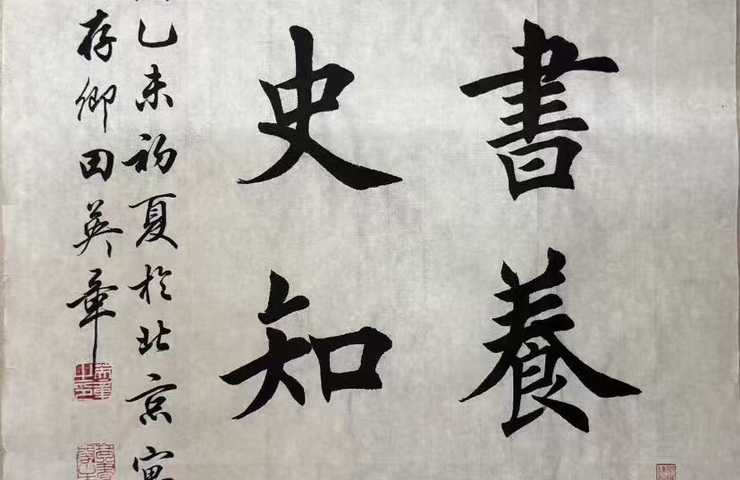 書養
史知
乙未初夏於北京寓
存卿田英章